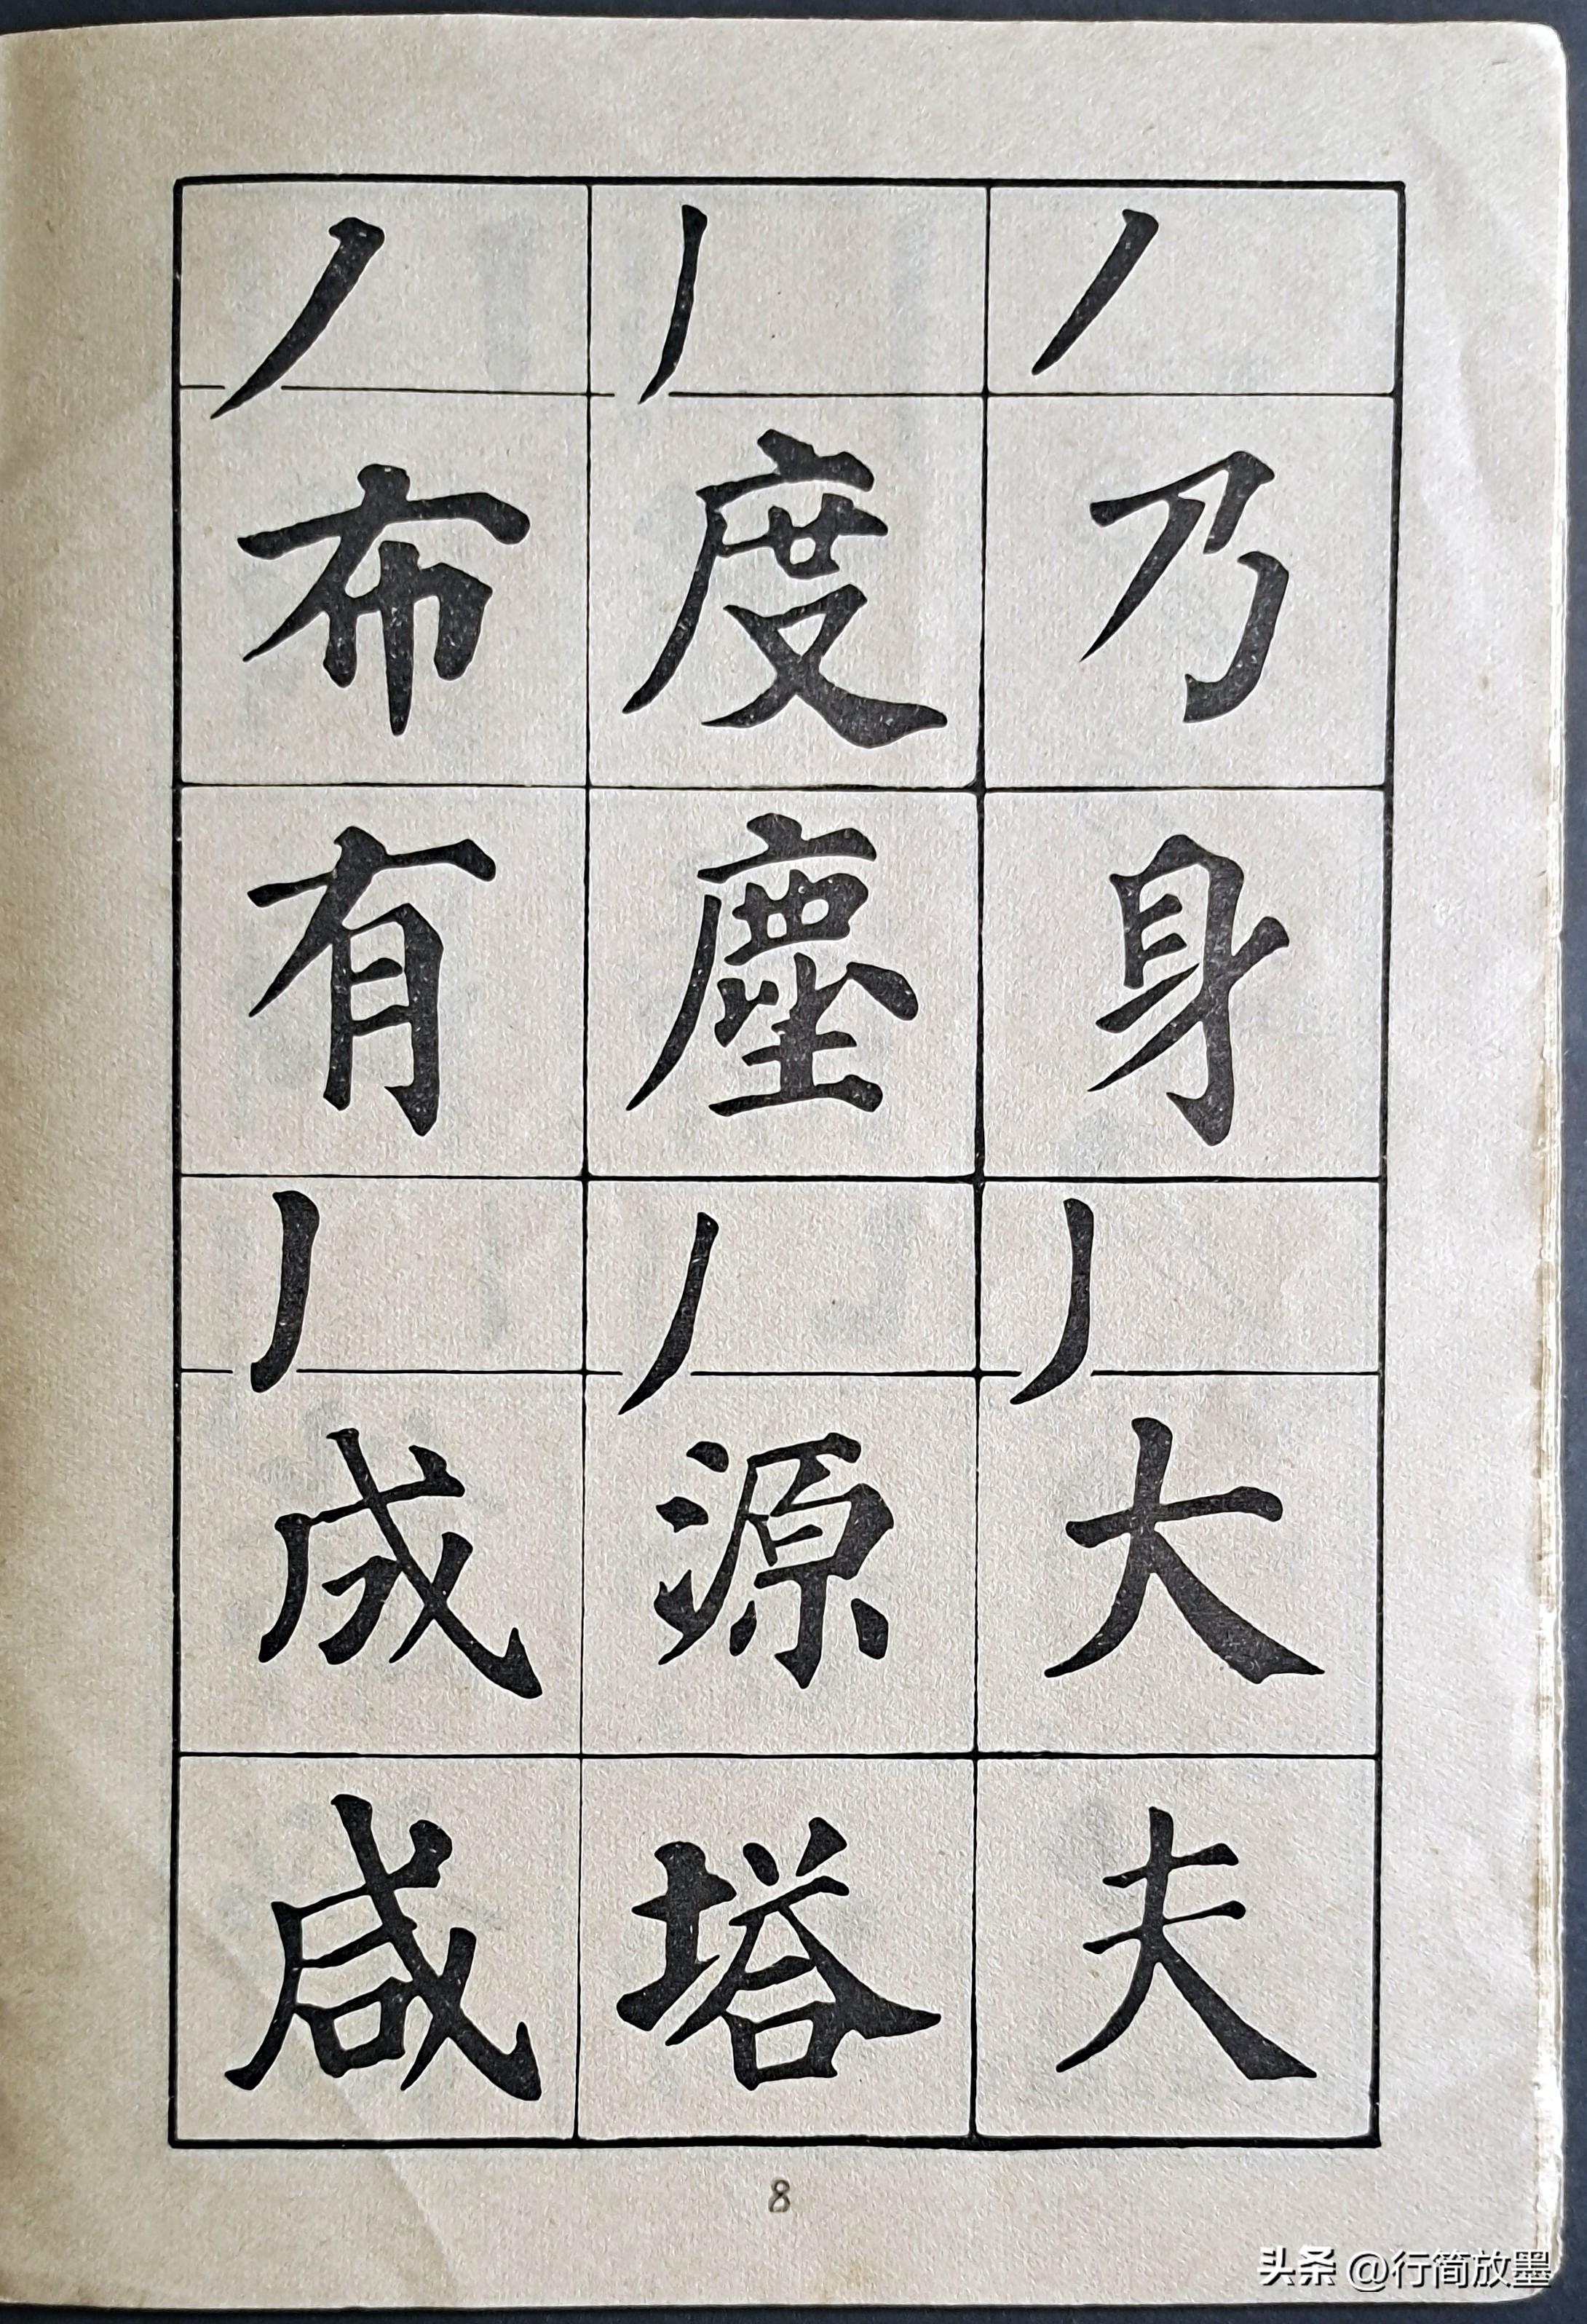 丿
乃
身
丿
大
夫
丿
度
塵
丿
源
塔
丿
布
有
丿
成
咸
8
头条 @行简放墨